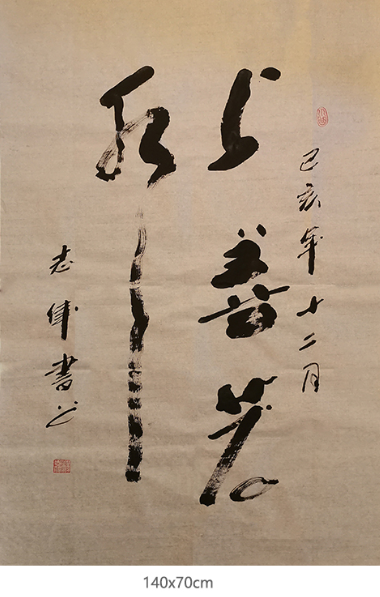 己亥年十二月
上善若
水
志 書
140x70cm